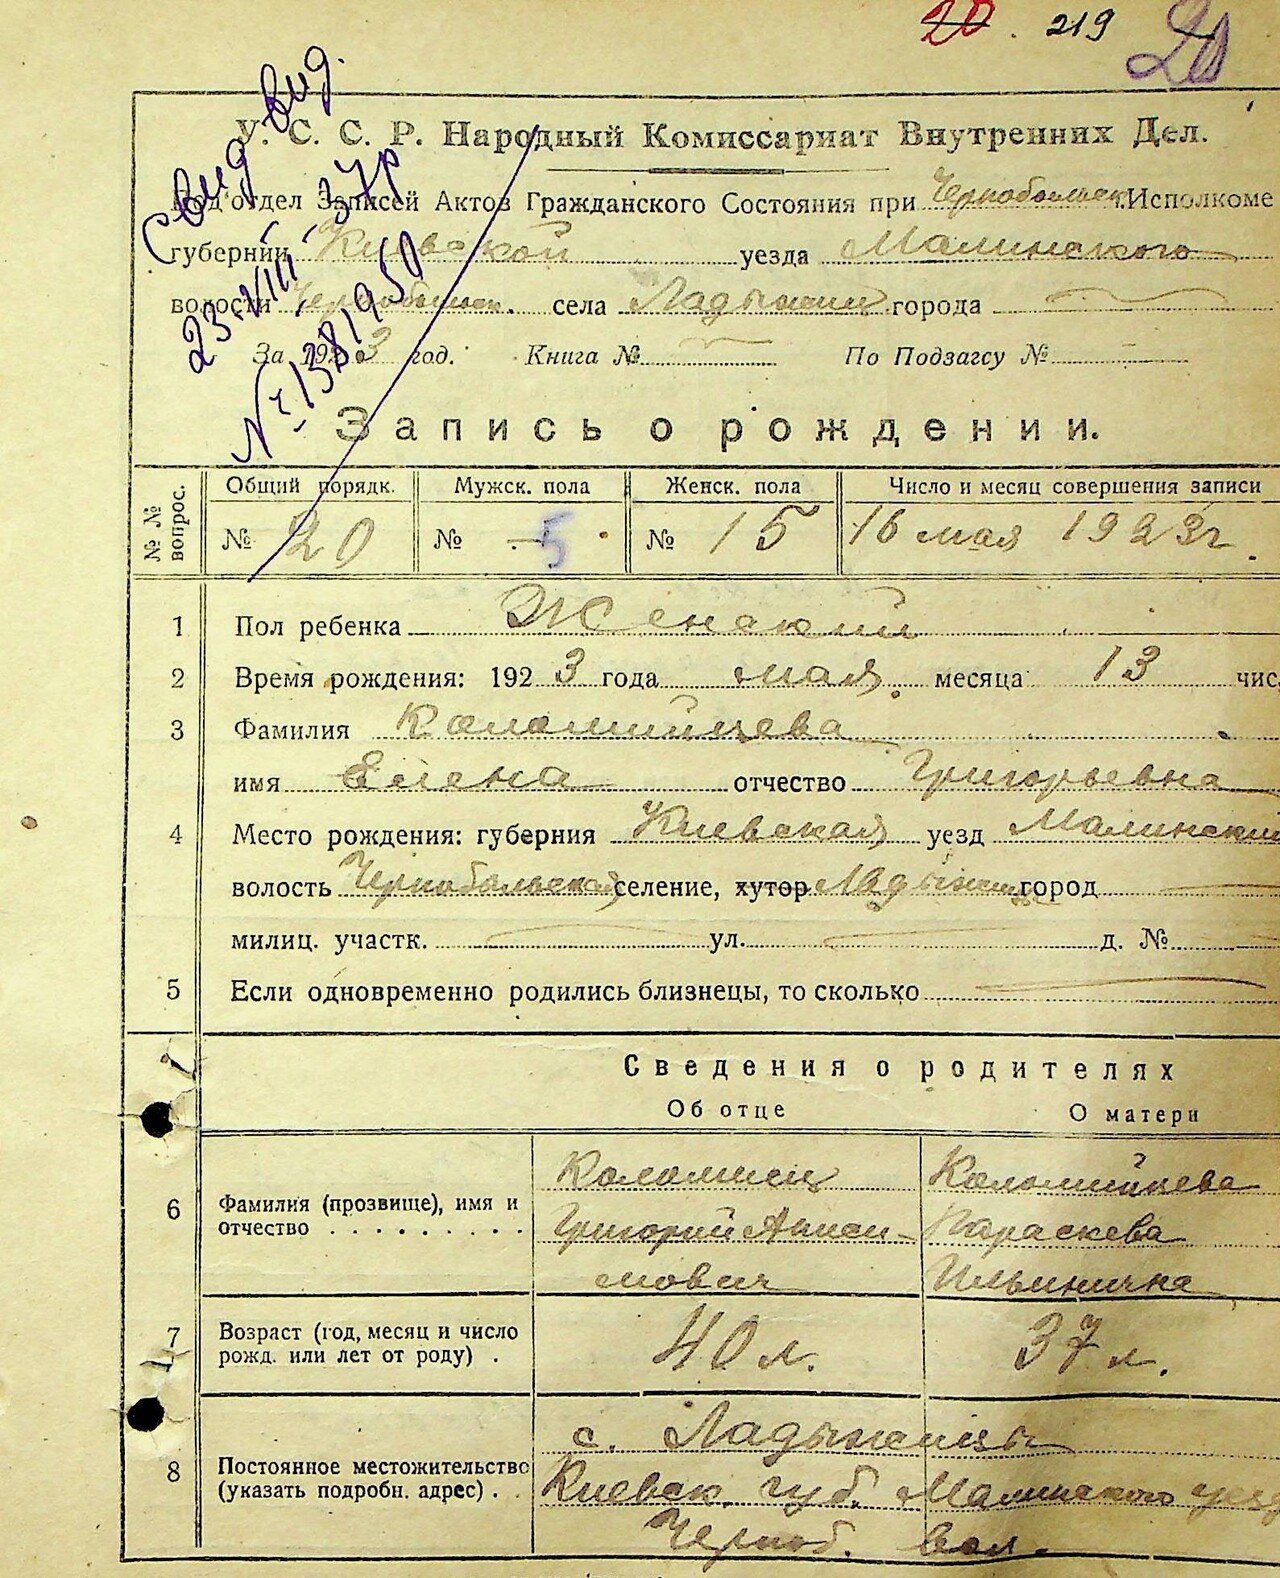 20 . 219 20
Свид выд.
23-VIII-37р
№ 1381950
У. С. С. Р. Народный Комиссариат Внутренних Дел.
Под'отдел Записей Актов Гражданского Состояния при Чернобыльск. Исполкоме
губернии Киевской уезда Малинского
волости Чернобыльск. села Ладыжичи города
За 1923 год. Книга № По Подзагсу №
Запись о рождении.
№ № вопрос. Общий порядк. Мужск. пола Женск. пола Число и месяц совершения записи
№ 20 № 5 № 15 16 мая 1923 г.
1 Пол ребенка Женский
2 Время рождения: 1923 года мая месяца 13 чис
3 Фамилия Коломийцева
имя Елена отчество Григорьевна
4 Место рождения: губерния Киевская уезд Малинский
волость Чернобыльская селение, хутор город
милиц. участк. ул. д. №
5 Если одновременно родились близнецы, то сколько
Сведения о родителях
Об отце О матери
6 Фамилия (прозвище), имя и отчество
Коломиец Коломийцева
Григорий Аниси- Параскева
мович Ильинична
7 Возраст (год, месяц и число рожд. или лет от роду) . 40 л. 37 л.
8 Постоянное местожительство (указать подробн. адрес) .
с. Ладыжичи
Киевск. губ. Малинского уезд
Черноб. вол.